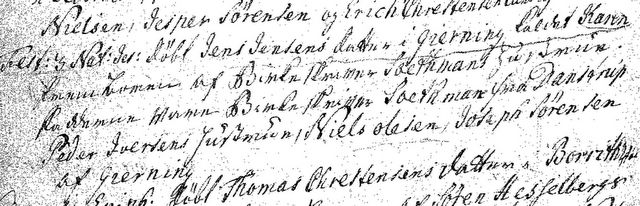 Nielsen, Jesper Sørensen og Erich Chrestensen
Fest: 3 Nat: Jes: døbt Jens Jensens datter i Gierning kaldet Karen
fremboren af Birkeskriver Soethmans Hustrue.
Fadderne vare Birkeskriver Soethman fra Danstrup
Peder Iversens Hustrue, Niels Olesen, Joseph Sørensen
af Gierning
døbt Thomas Chrestensens datter i Borrith
Søren Hesselbergs